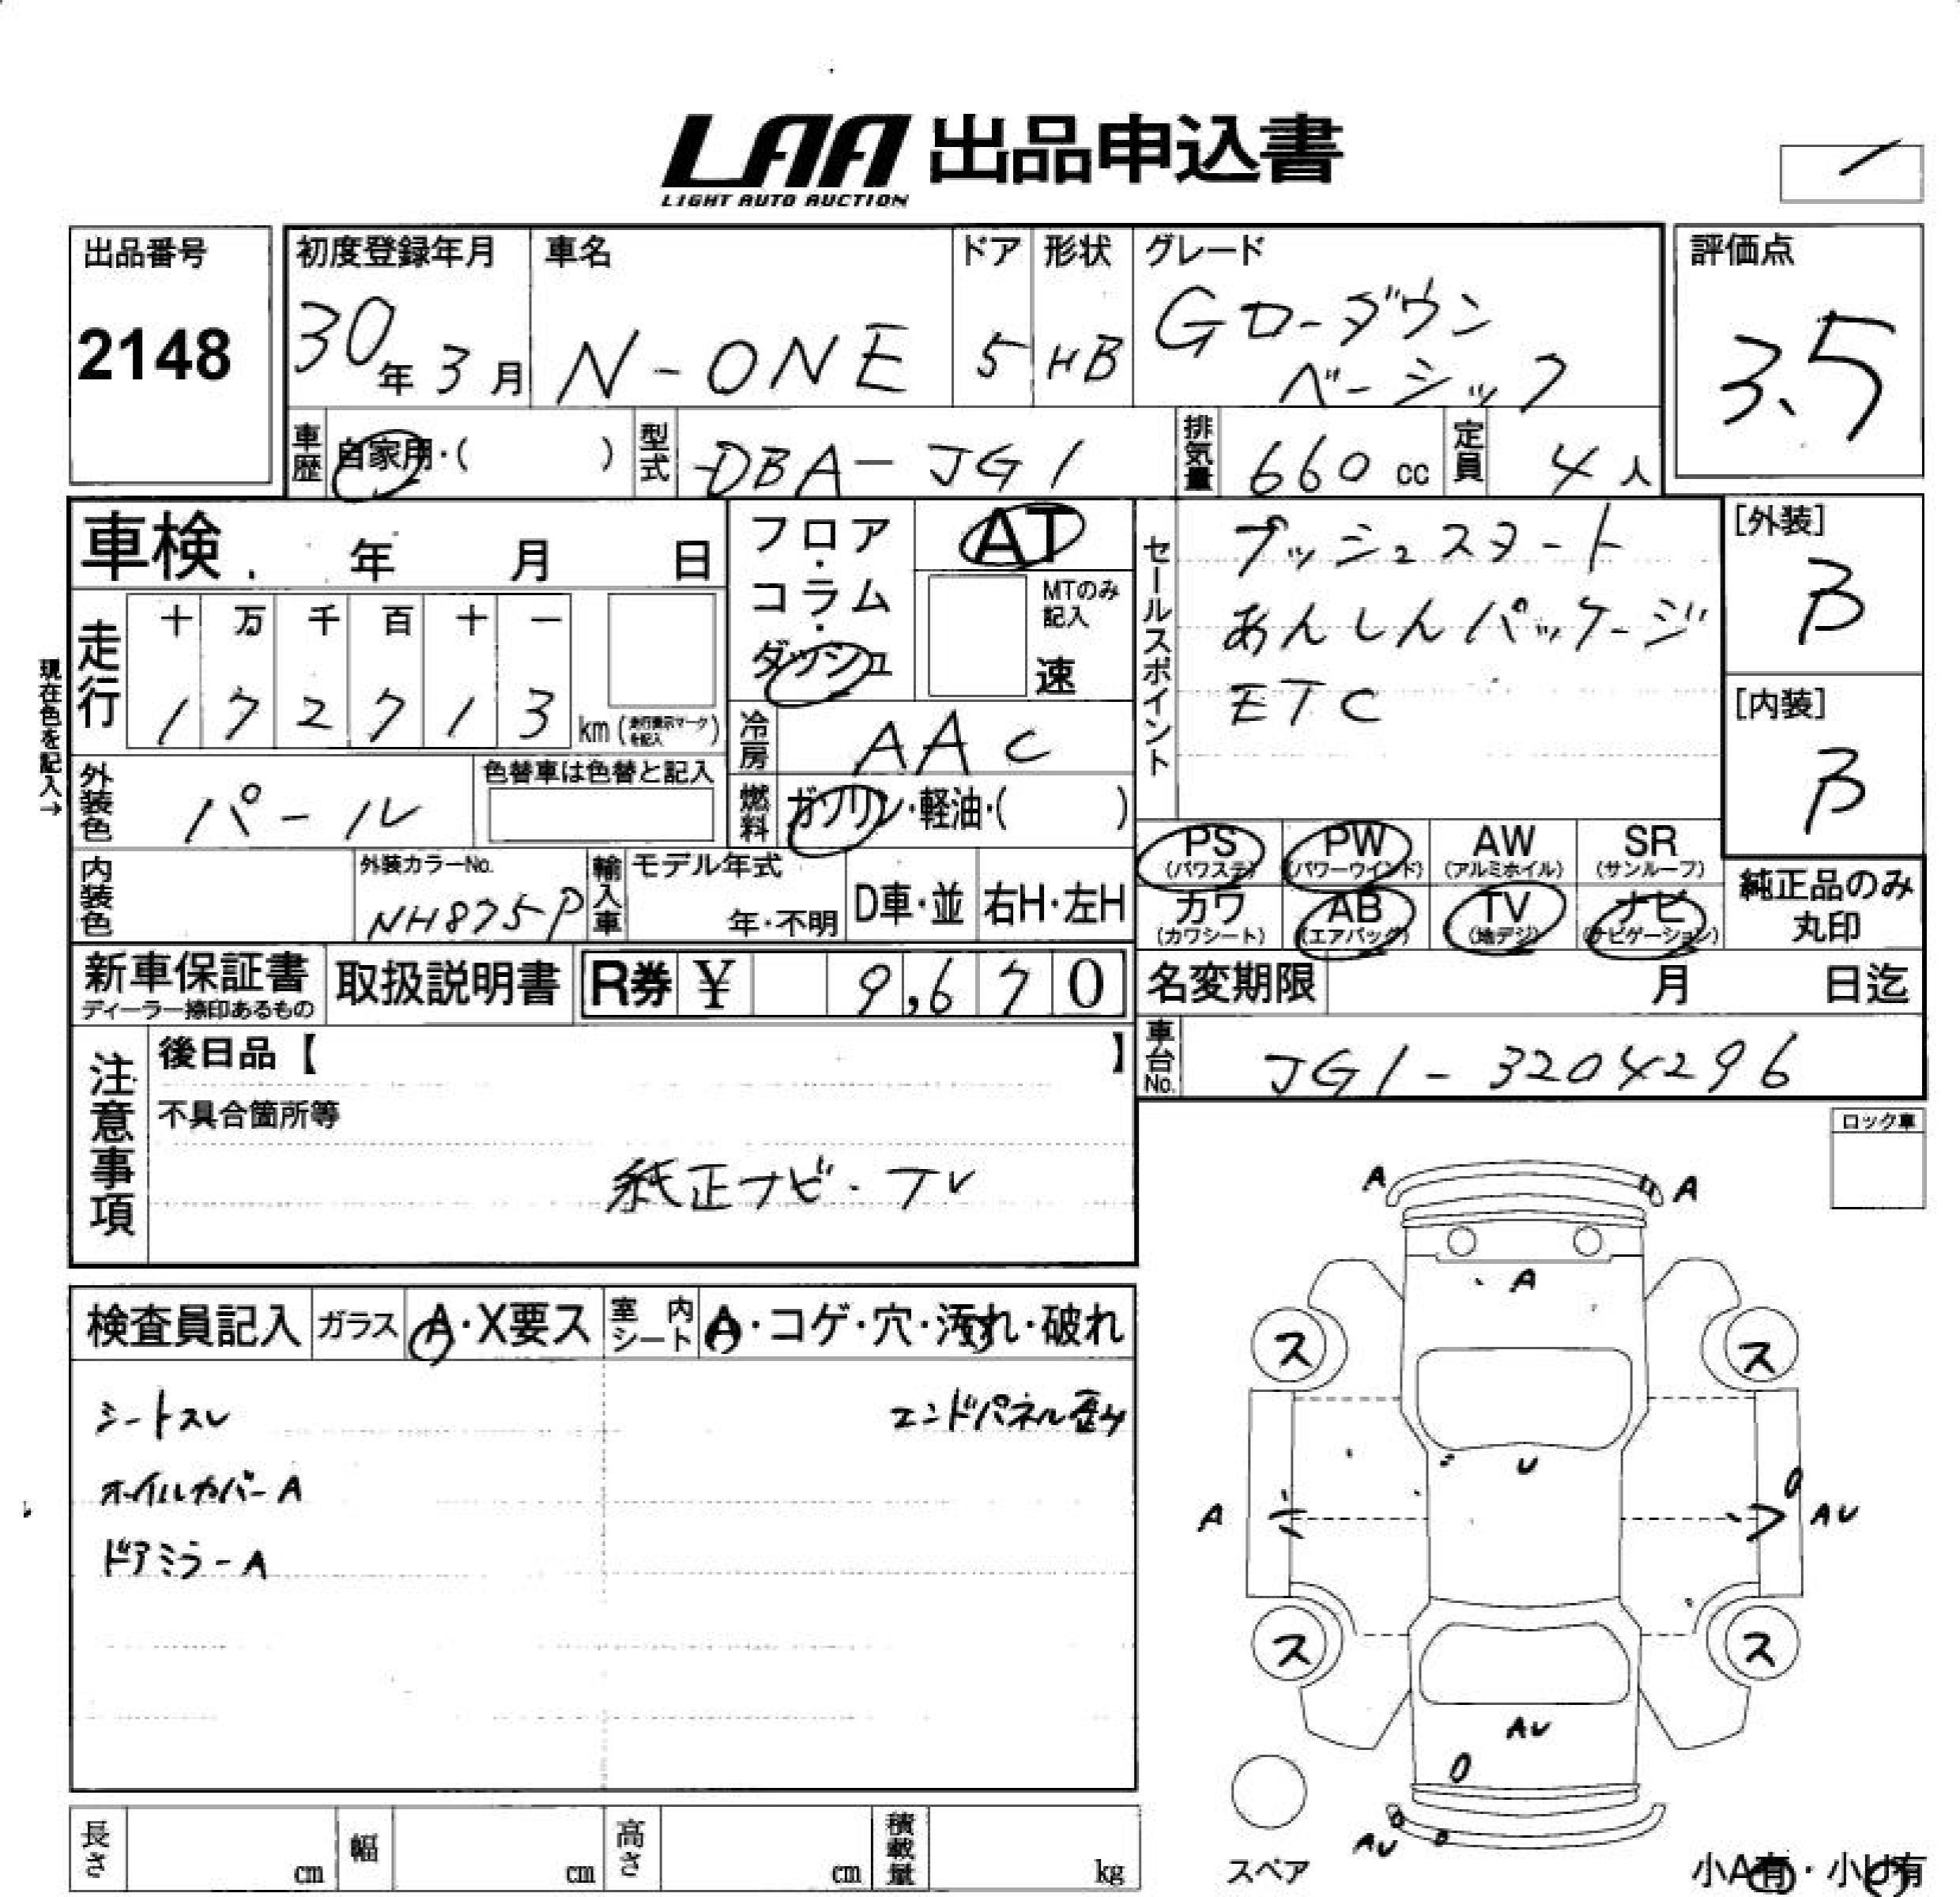 LAA 出品申込書
LIGHT AUTO AUCTION
出品番号
2148
初度登録年月
30年3月
車名
N-ONE
ドア
5
形状
HB
グレード
Gローダウン
ベーシック
評価点
3.5
車歴
自家用・( )
型式
DBA-JG1
排気量
660cc
定員
4人
車検 年 月 日
走行
十 万 千 百 十 一
1 7 2 7 1 3
km(走行表示マークを記入)
現在色を記入→
外装色
パール
色替車は色替と記入
内装色
外装カラーNo.
NH875P
輸入車
モデル年式
年・不明
D車・並
右H・左H
フロア・
コラム・
ダッシュ
AT
MTのみ
記入
速
冷房
AAC
燃料
ガソリン・軽油・( )
セールスポイント
プッシュスタート
あんしんパッケージ
ETC
[外装]
B
[内装]
B
PS
(パワステ)
PW
(パワーウインド)
AW
(アルミホイル)
SR
(サンルーフ)
カワ
(カワシート)
AB
(エアバッグ)
TV
(地デジ)
ナビ
(ナビゲーション)
純正品のみ
丸印
新車保証書
ディーラー捺印あるもの
取扱説明書
R券 ¥ 9,670
名変期限 月 日迄
車台No.
JG1-3204296
注意事項
後日品【 】
不具合箇所等
純正ナビ・TV
ロック車
検査員記入
ガラス
A・X要ス
室内シート
A・コゲ・穴・汚れ・破れ
シートスレ
エンドパネル歪み
オイルカバーA
ドアミラーA
A A
A
ス ス
U
A AU
ス ス
AU
AU
スペア
小A有・小U有
長さ cm
幅 cm
高さ cm
積載量 kg